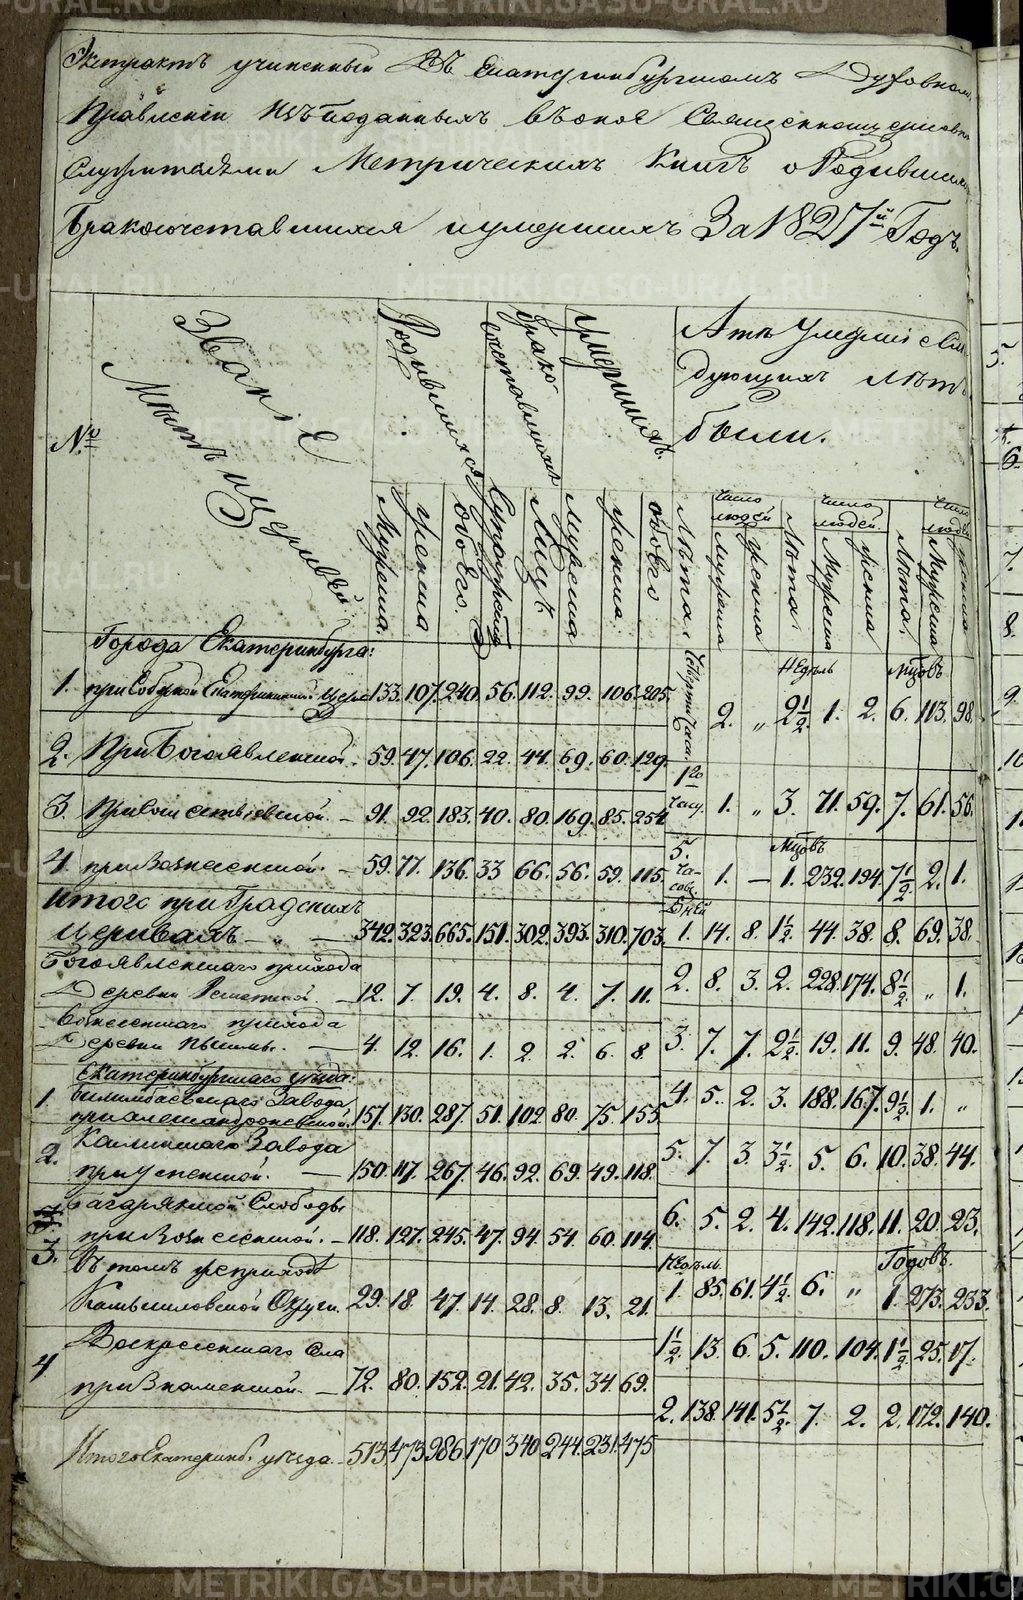 METRIKI.GASO-URAL.RU
METRIKI.GASO-URAL.RU
Экстрактъ учиненный Въ Екатеринбургскомъ Духовномъ
Правленіи изъ поданныхъ въ оное Священноцерковно
служителями Метрическихъ Книгъ о Родившихся
Бракосочетавшихся и умершихъ За 1827й Годъ.
№
Званіе
Мѣстъ и церквей
Родившихся
Бракосочетавшихся
Умершихъ
были.
Мужеска
Женска
обоего
Супружествъ
Лицъ
Мужеска
Женска
обоего
Лѣта
Число людей
Мужеска
Женска
Лѣта
Число людей
Мужеска
Женска
Лѣта
Число людей
Мужеска
Женска
Города Екатеринбурга:
1. при Соборной Екатерининской церкви 133. 107. 240. 56. 112. 99. 106. 205.
2. При Богоявленской. 59. 47. 106. 22. 44. 69. 60. 129.
3. При Сошественской. – 91. 92. 183. 40. 80. 169. 85. 254.
4. при Вознесенской. – 59. 77. 136. 33 66. 56. 59. 115.
Итого при Градскихъ
церквахъ – 342. 323. 665. 151. 302. 393. 310. 703.
Богоявленскаго прихода
Деревни Решетской. – 12. 7. 19. 4. 8. 4. 7. 11.
Вознесенскаго прихода
Деревни Пышмы. – 4. 12. 16. 1. 2. 2. 6. 8.
Екатеринбургскаго уѣзда:
1. Билимбаевскаго Завода
при Александроневской. 157. 130. 287. 51. 102. 80. 75. 155.
2. Каслинскаго Завода
при Успенской. – 150. 117. 267. 46. 92. 69. 49. 118.
3. Багаряцкой Слободы
при Вознесенской. – 118. 127. 245. 47. 94. 54. 60. 114.
Въ томъ же приходѣ
Камышловской Округи. 29. 18. 47. 14. 28. 8. 13. 21.
4 Воскресенскаго Села
при Знаменской. – 72. 80. 152. 21. 42. 35. 34. 69.
Итого Екатеринб. уѣзда. 513. 473. 986. 170 340 244. 231. 475
Недѣль Мцовъ
Четверти Часа. 2. „ 2½. 1. 2. 6. 113. 98.
1го Часу. 1. „ 3. 71. 59. 7. 61. 56.
Мцовъ
5. Часовъ. 1. – 1. 232. 194. 7½. 2. 1.
Дней
1. 14. 8. 1½. 44. 38. 8. 69. 38.
2. 8. 3. 2. 228. 174. 8½. „ 1.
3. 7. 7. 2½. 19. 11. 9. 48. 40.
4. 5. 2. 3. 188. 167. 9½. 1. „
5. 7. 3. 3½. 5. 6. 10. 38. 44.
6. 5. 2. 4. 142. 118. 11. 20. 23.
Недѣль. Годовъ.
1. 85. 61. 4½. 6. „ 1. 273. 233.
1½. 13. 6. 5. 110. 104. 1½. 25. 17.
2. 138. 141. 5½. 7. 2. 2. 172. 140.
METRIKI.GASO-URAL.RU
METRIKI.GASO-URAL.RU